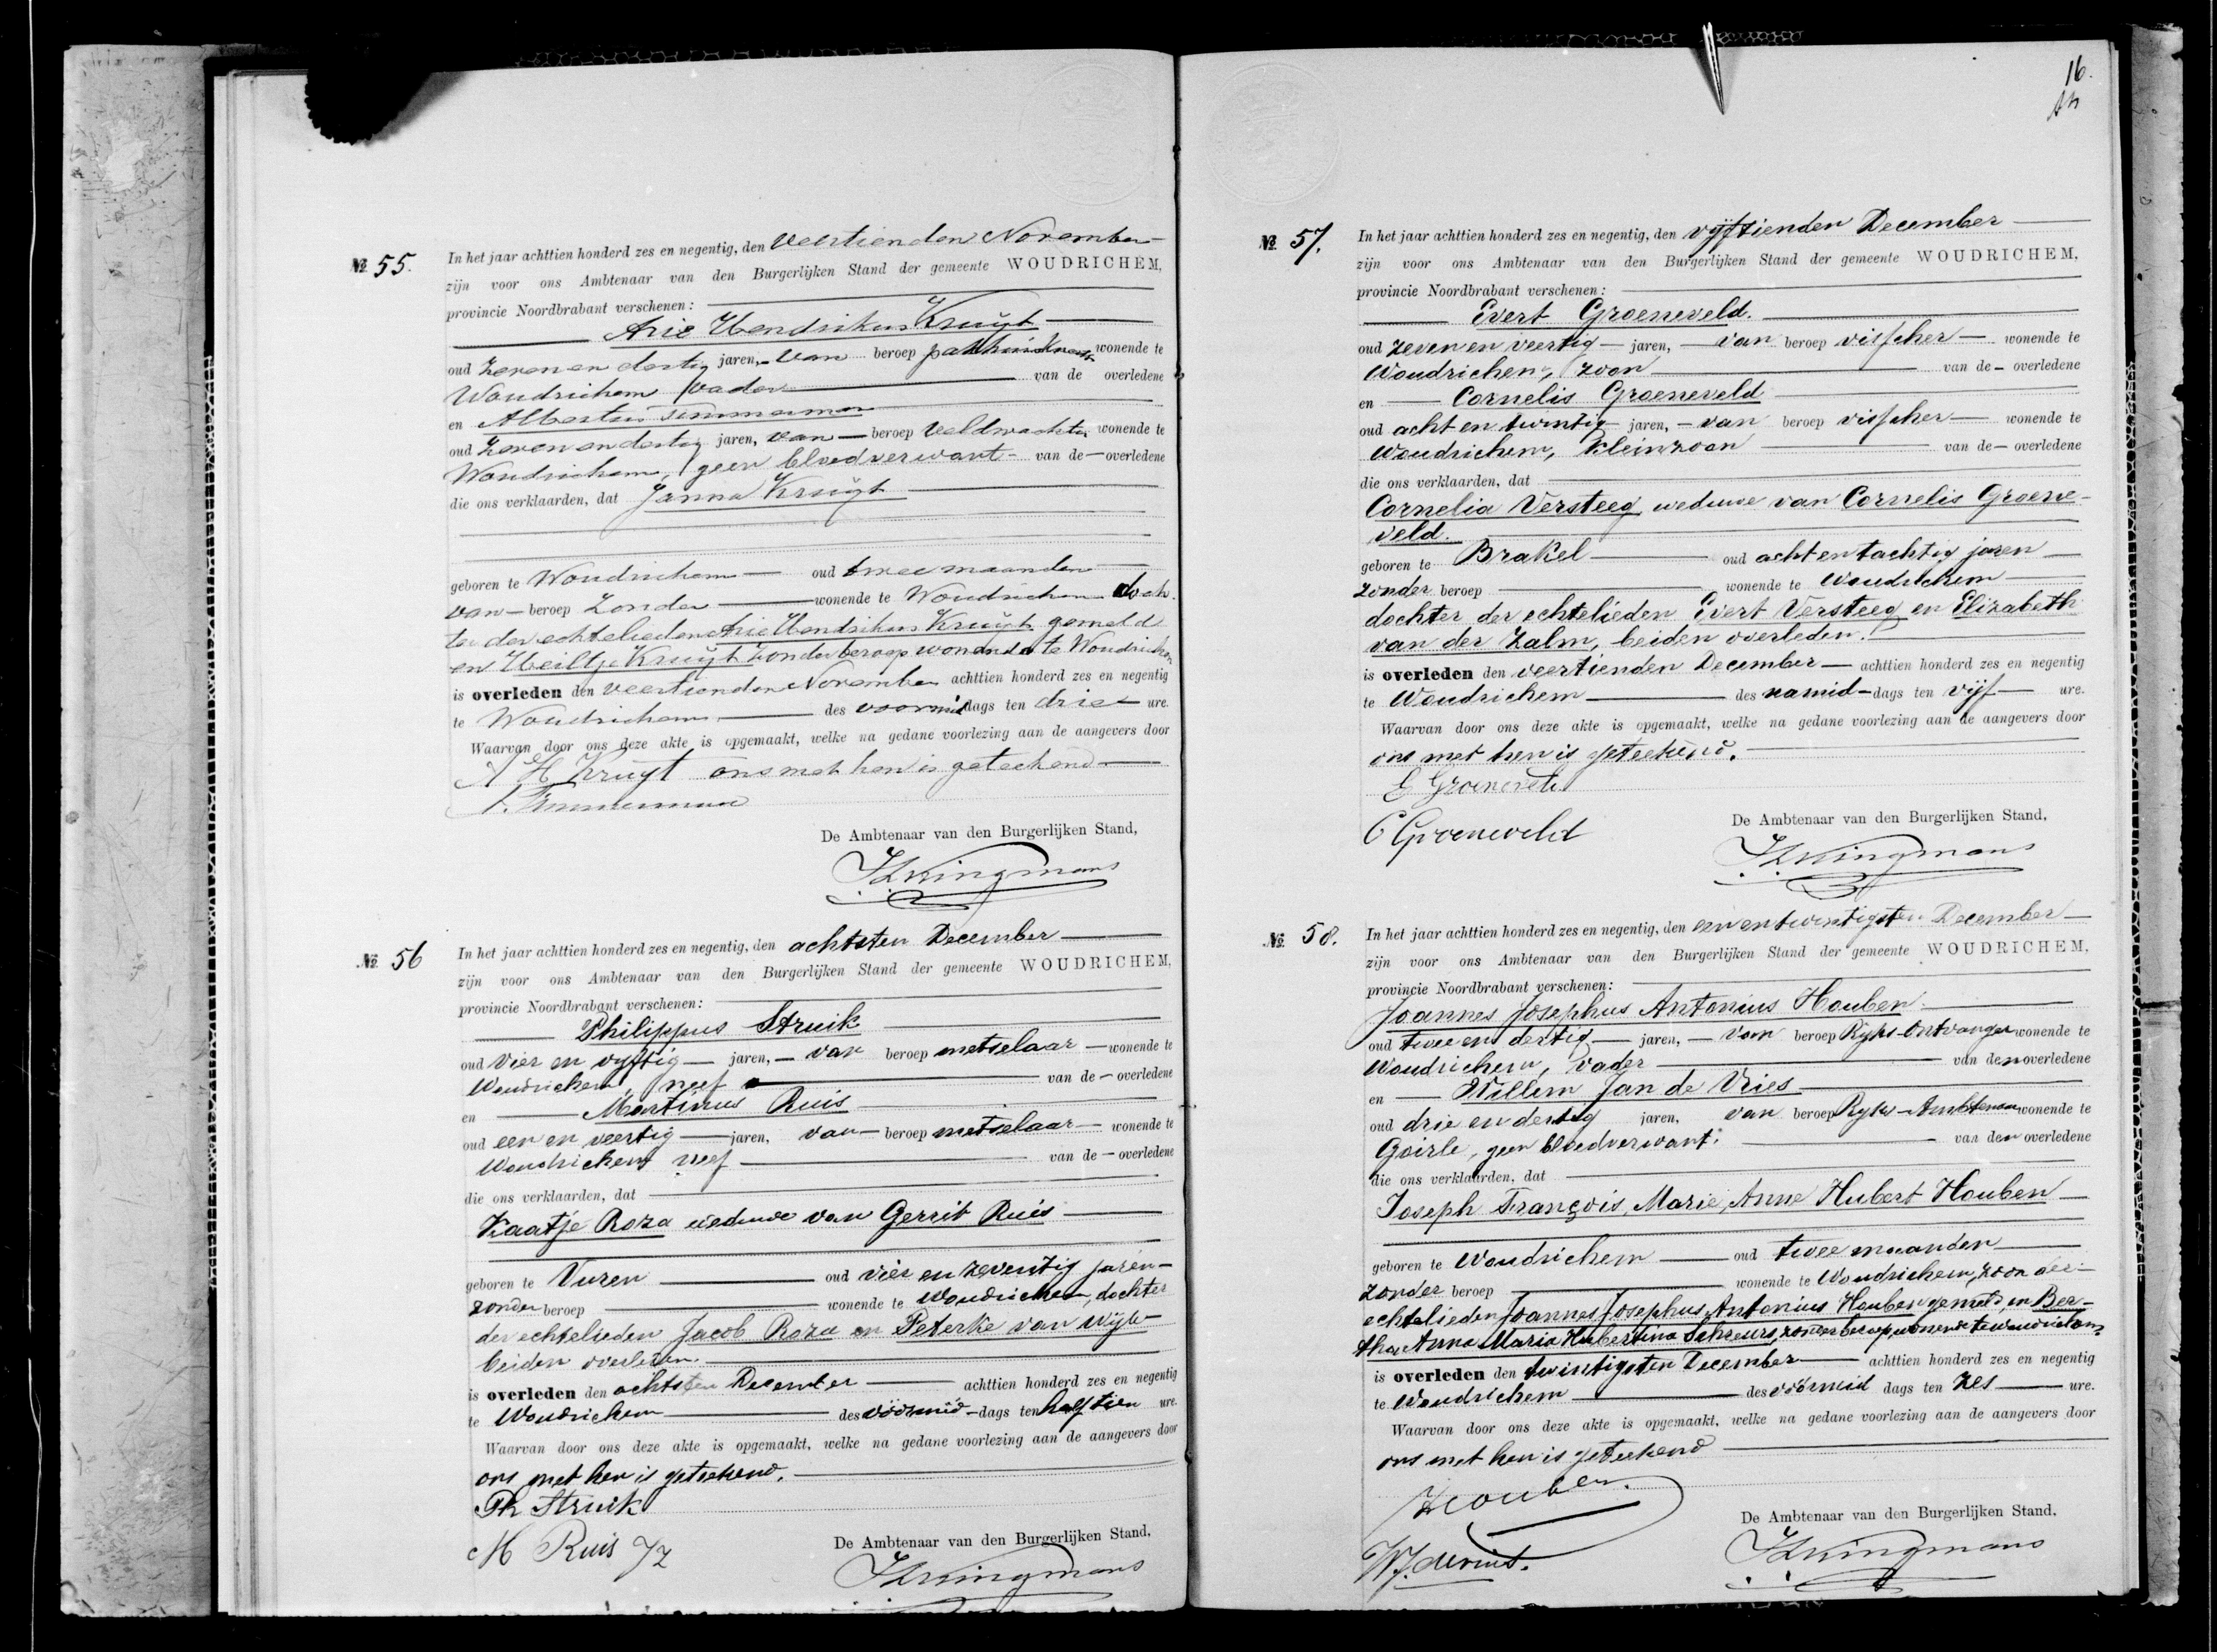 16.
№ 55.
In het jaar achttien honderd zes en negentig, den veertienden November
zijn voor ons Ambtenaar van den Burgerlijken Stand der gemeente WOUDRICHEM,
provincie Noordbrabant verschenen:
Arie Hendrikus Kruijt
oud zeven en dertig jaren, van beroep pakhuisknecht wonende te
Woudrichem, vader van de overledene
en Albertus Timmerman
oud zeven en dertig jaren, van beroep veldwachter wonende te
Woudrichem, geen bloedverwant van de overledene
die ons verklaarden, dat Janna Kruijt
geboren te Woudrichem oud twee maanden
van beroep zonder wonende te Woudrichem doch
ter der echtelieden Arie Hendrikus Kruijt gemeld
en Heiltje Kruijt zonder beroep wonende te Woudrichem
is overleden den veertienden November achttien honderd zes en negentig
te Woudrichem des voormiddags ten drie ure.
Waarvan door ons deze akte is opgemaakt, welke na gedane voorlezing aan de aangevers door
A H Kruijt ons met hen is geteekend
A. Timmerman
De Ambtenaar van den Burgerlijken Stand,
№ 56
In het jaar achttien honderd zes en negentig, den achtsten December
zijn voor ons Ambtenaar van den Burgerlijken Stand der gemeente WOUDRICHEM,
provincie Noordbrabant verschenen:
Philippus Struik
oud vier en vyftig jaren, van beroep metselaar wonende te
Woudrichem, neef van de overledene
en Martinus Ruis
oud een en veertig jaren, van beroep metselaar wonende te
Woudrichem neef van de overledene
die ons verklaarden, dat
Kaatje Roza weduwe van Gerrit Ruis
geboren te Vuren oud vier en zeventig jaren
zonder beroep wonende te Woudrichem, dochter
der echtelieden Jacob Roza en Peterke van Wijk
beiden overleden.
is overleden den achtsten December achttien honderd zes en negentig
te Woudrichem des voormid-dags ten half tien ure.
Waarvan door ons deze akte is opgemaakt, welke na gedane voorlezing aan de aangevers door
ons met hen is geteekend.
Ph Struik
M Ruis Jz
De Ambtenaar van den Burgerlijken Stand,
№ 57.
In het jaar achttien honderd zes en negentig, den vijftienden December
zijn voor ons Ambtenaar van den Burgerlijken Stand der gemeente WOUDRICHEM,
provincie Noordbrabant verschenen:
Evert Groeneveld.
oud zeven en veertig jaren, van beroep visscher wonende te
Woudrichem, zoon van de overledene
en Cornelis Groeneveld
oud acht en twintig jaren, van beroep visscher wonende te
Woudrichem, kleinzoon van de overledene
die ons verklaarden, dat
Cornelia Versteeg weduwe van Cornelis Groene-
veld.
geboren te Brakel oud acht en tachtig jaren
zonder beroep wonende te Woudrichem
dochter der echtelieden Evert Versteeg en Elizabeth
van der Zalm, beiden overleden.
is overleden den veertienden December achttien honderd zes en negentig
te Woudrichem des namid-dags ten vijf ure.
Waarvan door ons deze akte is opgemaakt, welke na gedane voorlezing aan de aangevers door
ons met hen is geteekend.
E Groeneveld
C Groeneveld
De Ambtenaar van den Burgerlijken Stand,
№ 58.
In het jaar achttien honderd zes en negentig, den een en twintigsten December
zijn voor ons Ambtenaar van den Burgerlijken Stand der gemeente WOUDRICHEM,
provincie Noordbrabant verschenen:
Joannes Josephus Antonius Houben
oud twee en dertig jaren, van beroep Ryks-Ontvanger wonende te
Woudrichem, vader van den overledene
en Willem Jan de Vries
oud drie en dertig jaren, van beroep Ryks-Ambtenaar wonende te
Goirle, geen bloedverwant. van den overledene
die ons verklaarden, dat
Joseph François, Marie, Anne Hubert Houben
geboren te Woudrichem oud twee maanden
zonder beroep wonende te Woudrichem, zoon der
echtelieden Joannes Josephus Antonius Houben gemeld en Ber-
tha Anna Maria Hubertina Schreurs, zonder beroep wonende te Woudrichem,
is overleden den twintigsten December achttien honderd zes en negentig
te Woudrichem des voormid dags ten zes ure.
Waarvan door ons deze akte is opgemaakt, welke na gedane voorlezing aan de aangevers door
ons met hen is geteekend
Houben.
WJ. de Vries.
De Ambtenaar van den Burgerlijken Stand,